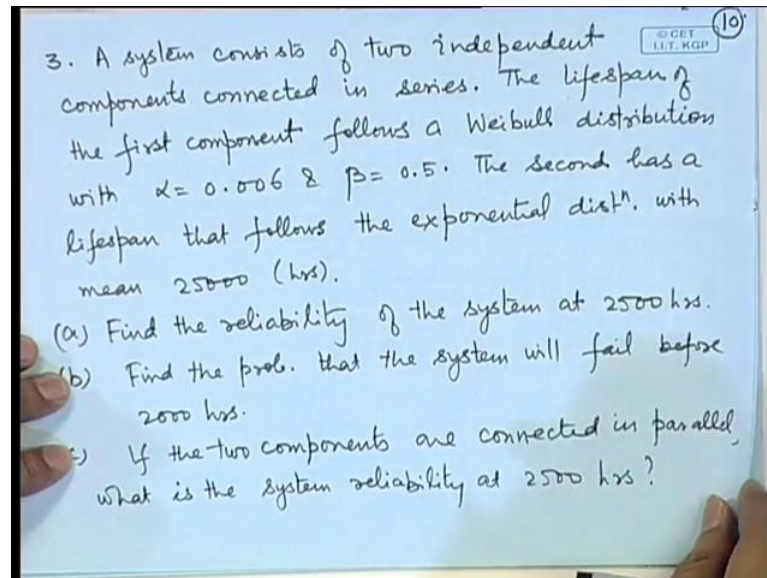 10
© CET
I.I.T. KGP
3. A system consists of two independent
components connected in series. The lifespan of
the first component follows a Weibull distribution
with α = 0.006 & β = 0.5. The second has a
lifespan that follows the exponential distⁿ. with
mean 25000 (hrs).
(a) Find the reliability of the system at 2500 hrs.
(b) Find the prob. that the system will fail before
2000 hrs.
If the two components are connected in parallel,
what is the system reliability at 2500 hrs?